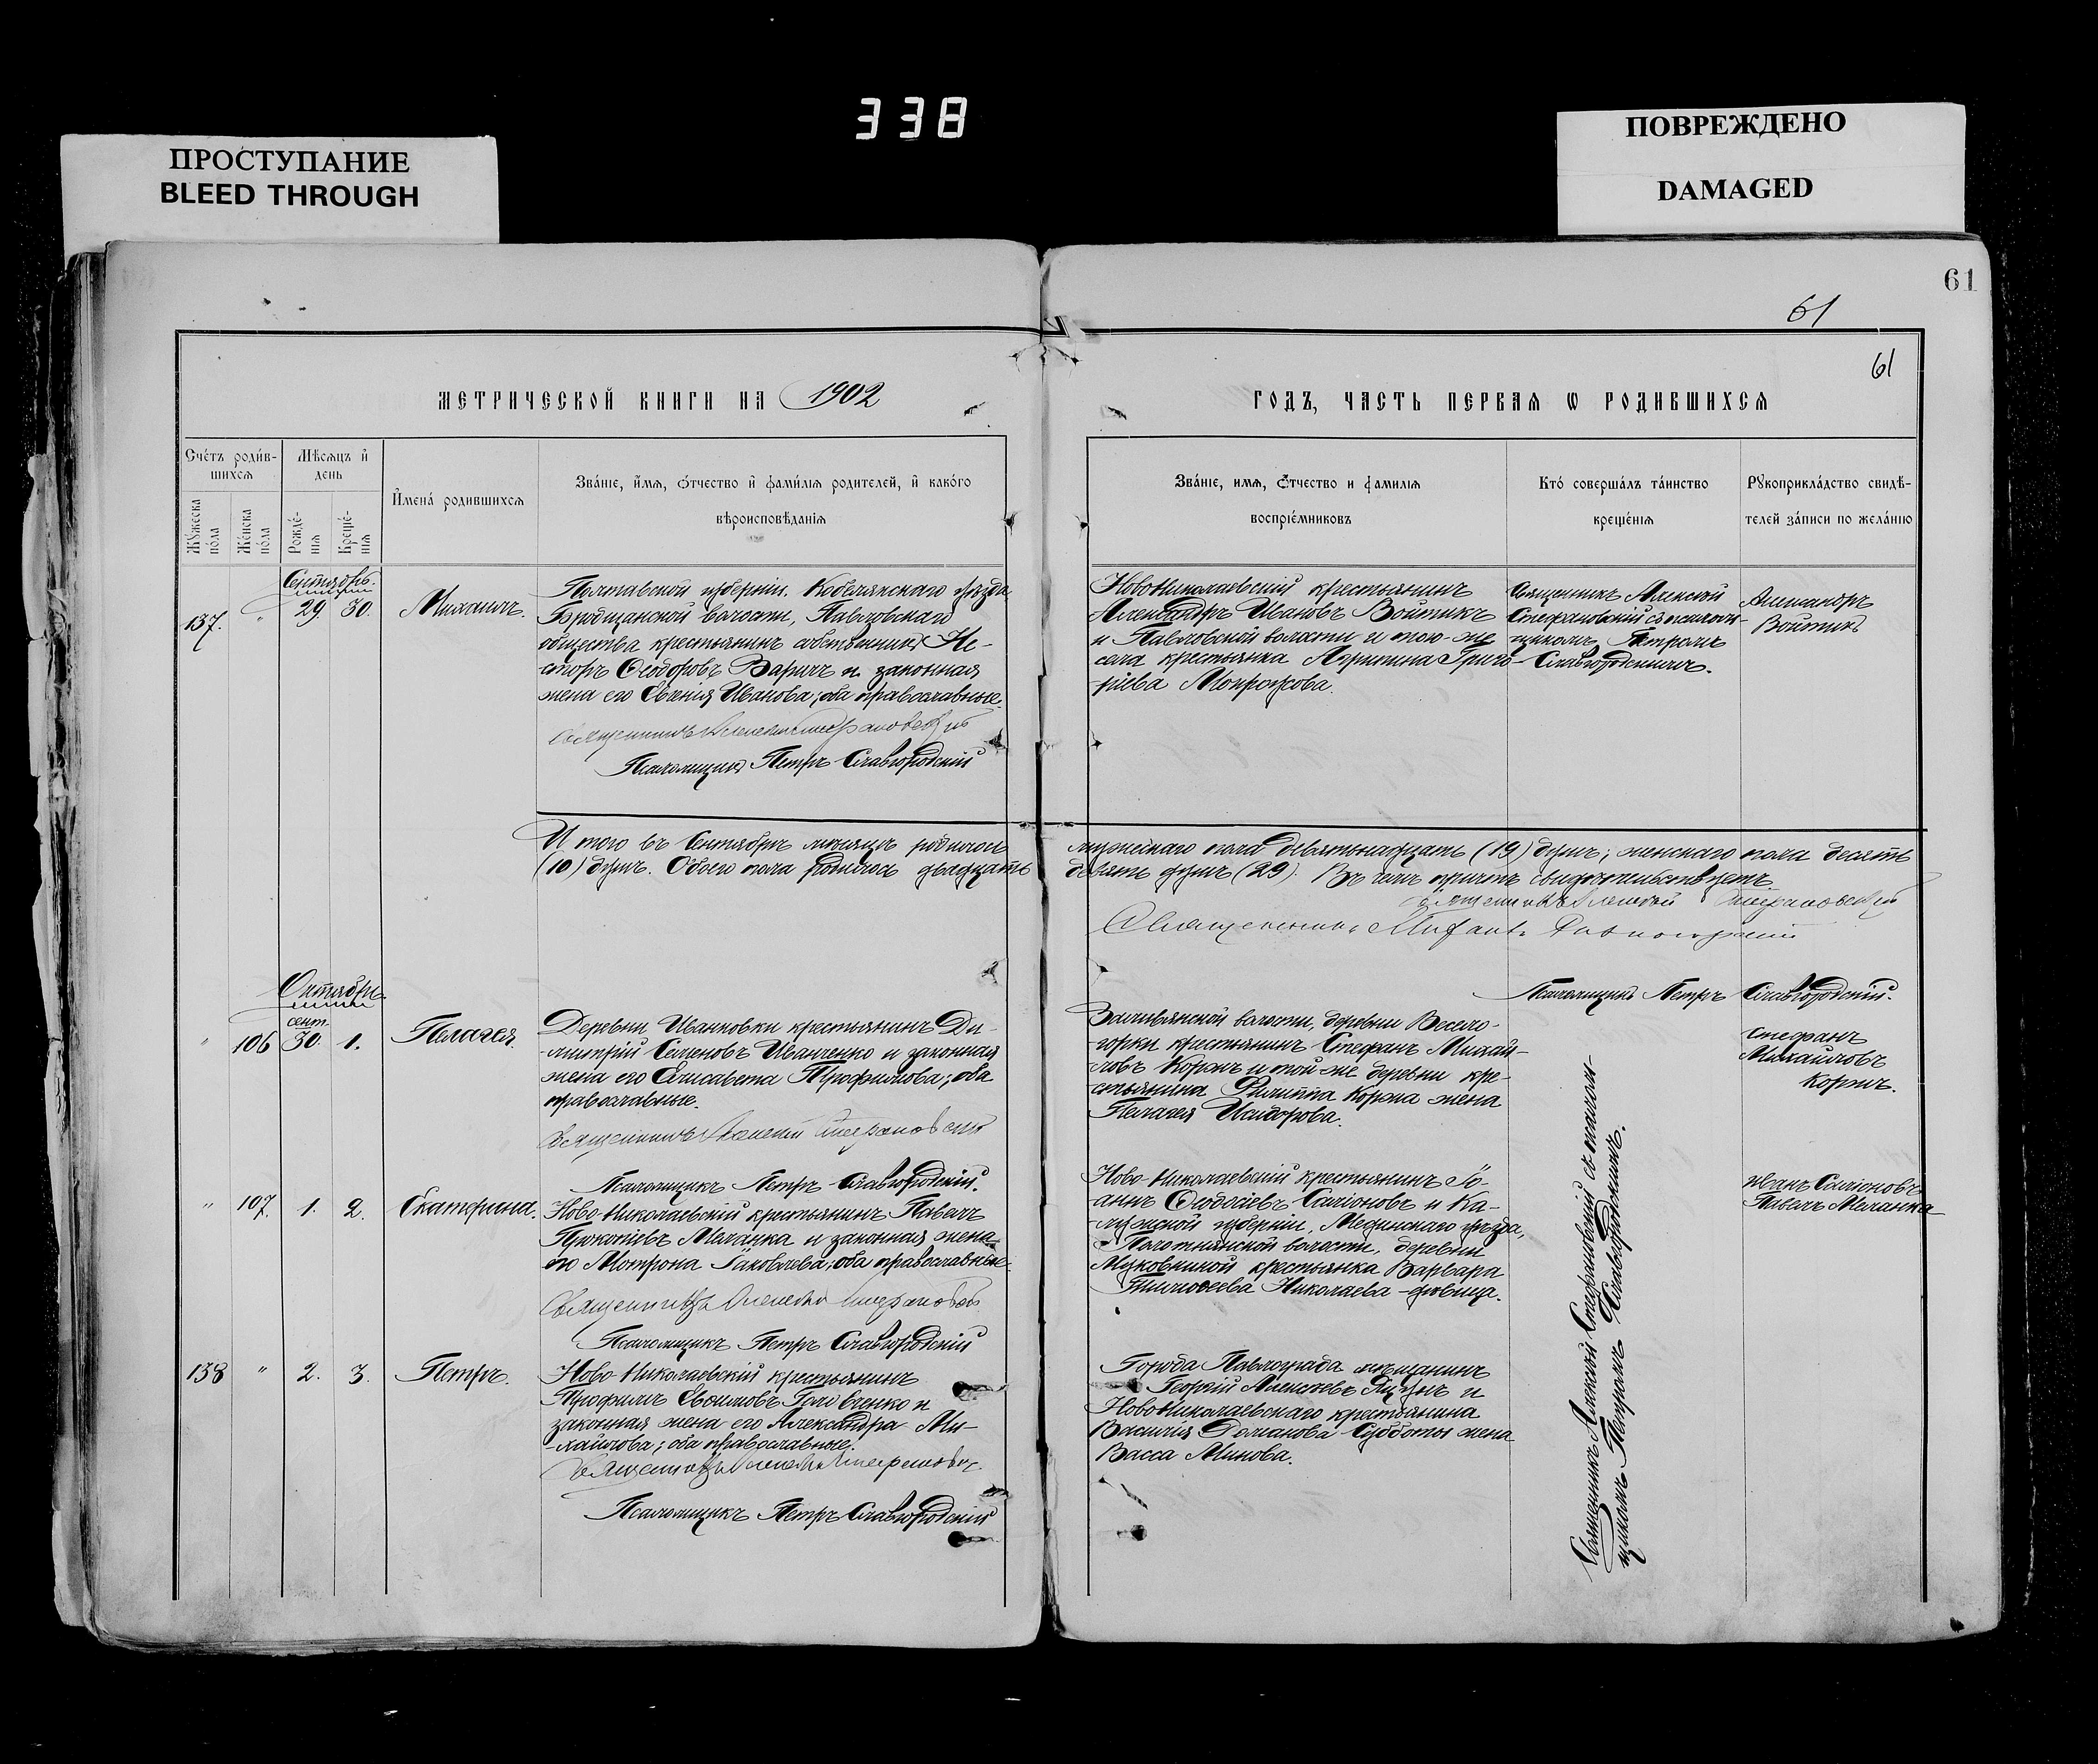 338
ПРОСТУПАНИЕ
BLEED THROUGH
ПОВРЕЖДЕНО
DAMAGED
61
61
61
МЕТРИЧЕСКОЙ КНИГИ НА 1902
ГОДЪ, ЧАСТЬ ПЕРВАЯ Ѡ РОДИВШИХСѦ
Счетъ родив-
шихсѧ
Мѣсѧцъ и
день
Мꙋжеска
пола
Женска
пола
Рожде-
нїѧ
Креще-
нїѧ
Имена родившихсѧ
Званїе, имѧ, ѻтчество и фамилїѧ родителей, и какого
вѣроисповѣданїѧ
Званїе, имѧ, ѻтчество и фамилїѧ
воспрїемниковъ
Кто совершалъ таинство
крещенїѧ
Рꙋкоприкладство свидѣ-
телей записи по желанїю
Сентябрь.
137. " 29. 30. Михаилъ.
Полтавской губерніи. Кобелякскаго уѣзда
Бродщанской волости, Павловскаго
общества крестьянинъ собственникъ Не-
сторъ Ѳеодоровъ Варичъ и законная
жена его Евгенія Иванова; оба православные.
Священникъ Алексей Стефановскій
Псаломщикъ Петръ Славгородскій
Новониколаевскій крестьянинъ
Александръ Ивановъ Войтикъ
и Павловской волости и того-же
села крестьянка Агрипина Григо-
рьева Мокроусова.
Священникъ Алексей
Стефановскій съ псалом-
щикомъ Петромъ
Славгородскимъ.
Александръ
Войтикъ
И того въ Сентябрѣ мѣсяцѣ родилось
мужескаго пола девятьнадцать (19) душъ; женскаго пола десять
(10) душъ. Обоего пола родилось двадцать
девять душъ (29). Въ чемъ причтъ свидѣтельствуетъ
Священникъ Алексей Стефановскій
Священникъ
Псаломщикъ Петръ Славгородскій.
Октябрь
сент.
" 106 30. 1. Пелагея.
Деревни Ивановки крестьянинъ Ди-
митрій Семеновъ Иванченко и законная
жена его Елисавета Трофимова; оба
православные.
Священникъ Алексей Стефановскій
Псаломщикъ Петръ Славгородскій.
волости, деревни Весело-
горки крестьянинъ Стефанъ Михай-
ловъ Коржъ и той-же деревни кре-
стьянина Филиппа Коржа жена
Пелагея Исидорова.
Стефанъ
Михайловъ
Коржъ.
" 107. 1. 2. Екатерина.
Ново-Николаевскій крестьянинъ Павелъ
Прокопіевъ Меланка и законная жена
его Мотрона Іаковлева; оба православные.
Священникъ Алексей Стефановскій
Псаломщикъ Петръ Славгородскій
Ново-Николаевскій крестьянинъ Іо-
аннъ Ѳеодосіевъ Саліоновъ и Ка-
лужской губерніи, Медынскаго уѣзда,
Полотнянской волости, деревни
Муковниной крестьянка Варвара
Тимоѳеева Николаева-вдовица.
Иванъ Саліоновъ
Павелъ Меланка
138 " 2. 3. Петръ.
Ново-Николаевскій крестьянинъ
Трофимъ Евѳимовъ Головченко и
законная жена его Александра Ми-
хайлова; оба православные.
Священникъ Алексей Стефановск.
Псаломщикъ Петръ Славгородскій
Города Павлограда мѣщанинъ
Георгій Алексѣевъ и
Новониколаевскаго крестьянина
Василія Романова Субботы жена
Васса Минова.
Священникъ Алексей Стефановскій съ псалом-
щикомъ Петромъ Славгородскимъ.